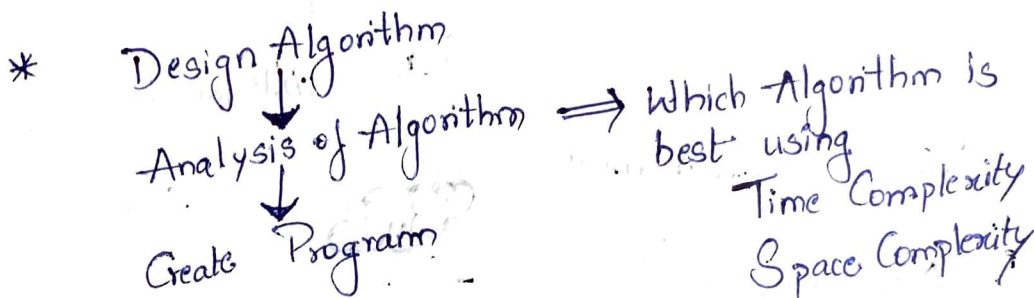 * Design Algorithm
↓
Analysis of Algorithm ⇒ Which Algorithm is
best using
Time Complexity
Space Complexity
↓
Create Program